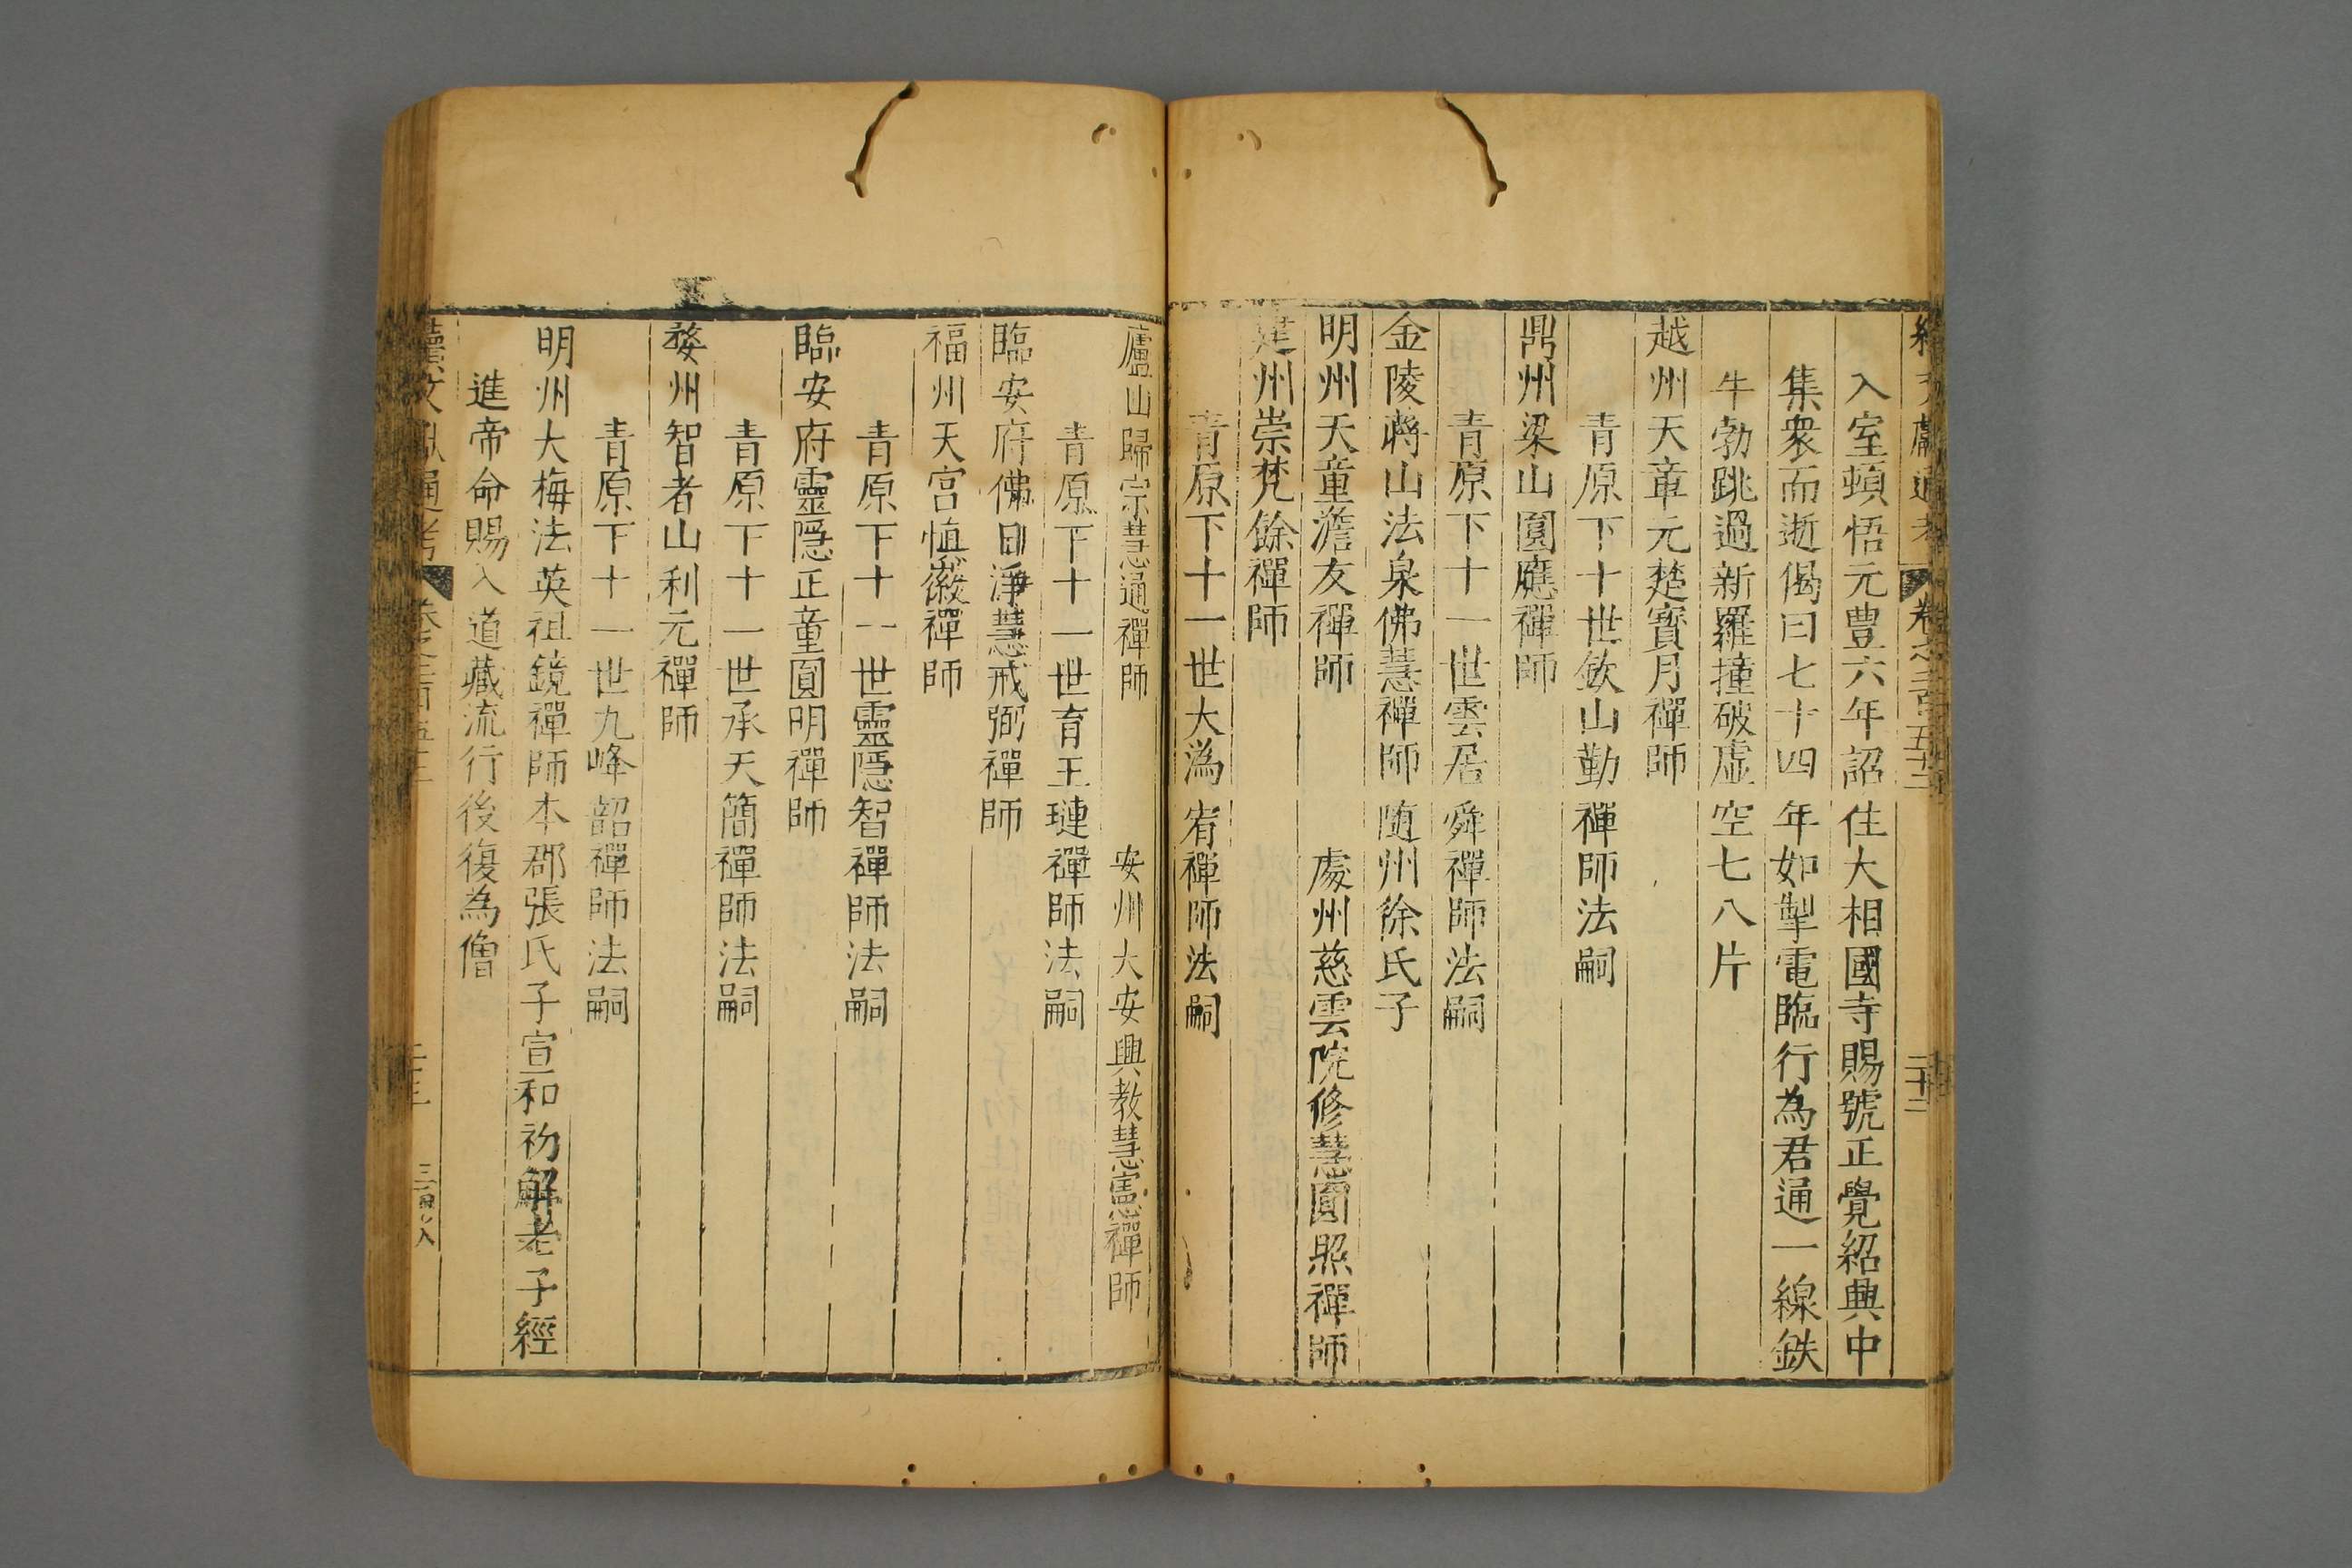 續文獻通考 卷之二百五十二 二十二
入室頓悟元豊六年詔住大相國寺賜號正覺紹興中
集衆而逝偈曰七十四年如掣電臨行為君通一線鉄
牛勃跳過新羅撞破虚空七八片
越州天章元楚寳月禪師
青原下十世欽山勤禪師法嗣
鼎州梁山圓應禪師
青原下十一世雲居舜禪師法嗣
金陵蔣山法泉佛慧禪師 随州徐氏子
明州天童澹友禪師 處州慈雲院修慧圓照禪師
建州崇梵餘禪師
青原下十一世大溈宥禪師法嗣
廬山歸宗慧通禪師 安州大安興教慧憲禪師
青原下十一世育王璉禪師法嗣
臨安府佛日淨慧戒弼禪師
福州天宫慎徽禪師
青原下十一世靈隱智禪師法嗣
臨安府靈隱正童圓明禪師
青原下十一世承天簡禪師法嗣
婺州智者山利元禪師
青原下十一世九峰韶禪師法嗣
明州大梅法英祖鏡禪師本郡張氏子宣和初解老子經
進帝命賜入道藏流行後復為僧
續文獻通考